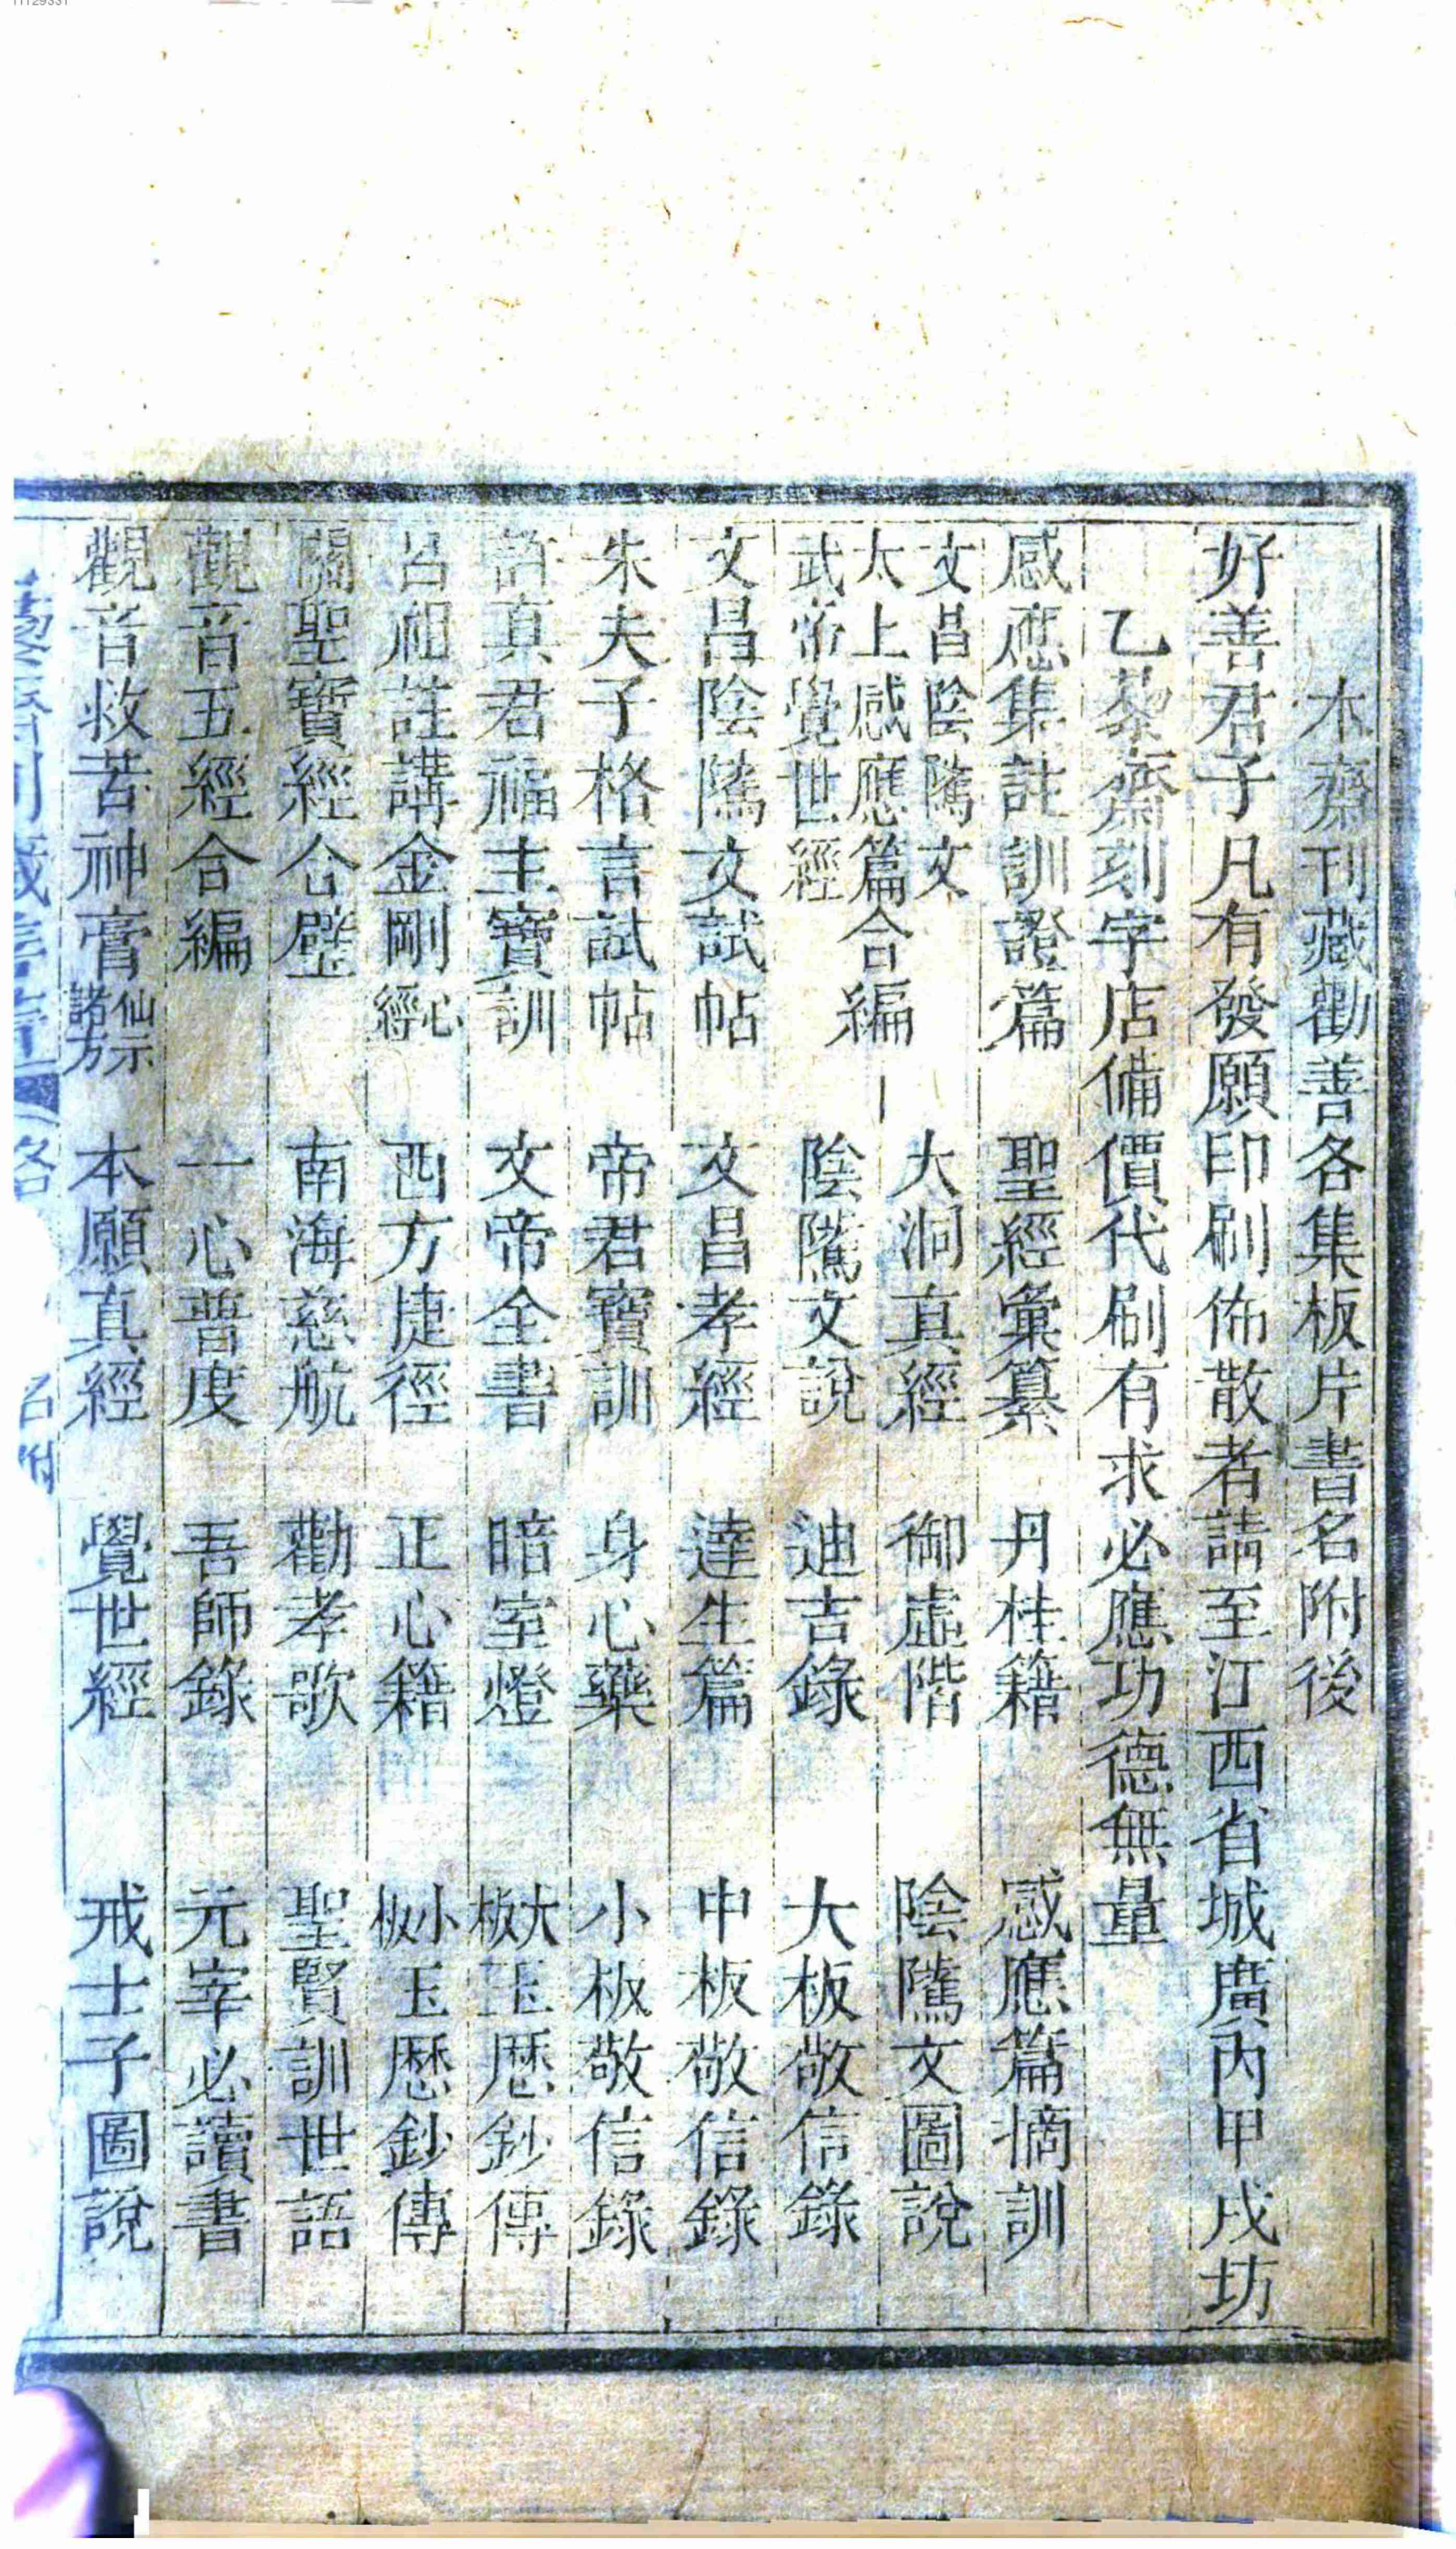 本齋刊藏勸善各集板片書名附後
好善君子凡有發願印刷佈散者請至江西省城廣內甲戌坊
乙藜齋刻字店備價代刷有求必應功德無量
感應集註訓證篇 聖經彙纂 丹桂籍 感應篇摘訓
文昌陰隲文
太上感應篇合編 大洞真經 御虛階 陰隲文圖說
武帝覺世經 陰隲文說 迪吉錄 大板敬信錄
文昌陰隲文試帖 文昌孝經 達生篇 中板敬信錄
朱夫子格言試帖 帝君寶訓 身心藥 小板敬信錄
許真君福主寶訓 文帝全書 暗室燈 大板玉歷鈔傳
呂祖註講金剛心經 西方捷徑 正心籍 小板玉歷鈔傳
關聖寶經合壁 南海慈航 勸孝歌 聖賢訓世語
觀音五經合編 一心普度 吾師錄 元宰必讀書
觀音救苦神膏仙示諸方 本願真經 覺世經 戒士子圖說